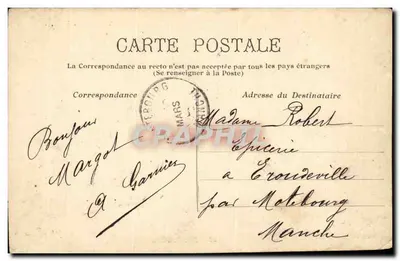 CARTE POSTALE
La Correspondance au recto n'est pas acceptée par tous les pays étrangers
(Se renseigner à la Poste)
Correspondance
Adresse du Destinataire
MARS
CPARAMA
Bonjour
Margot
A Garnier
Madame Robert
Epicerie
a Eroudeville
par Motebourg
Manche